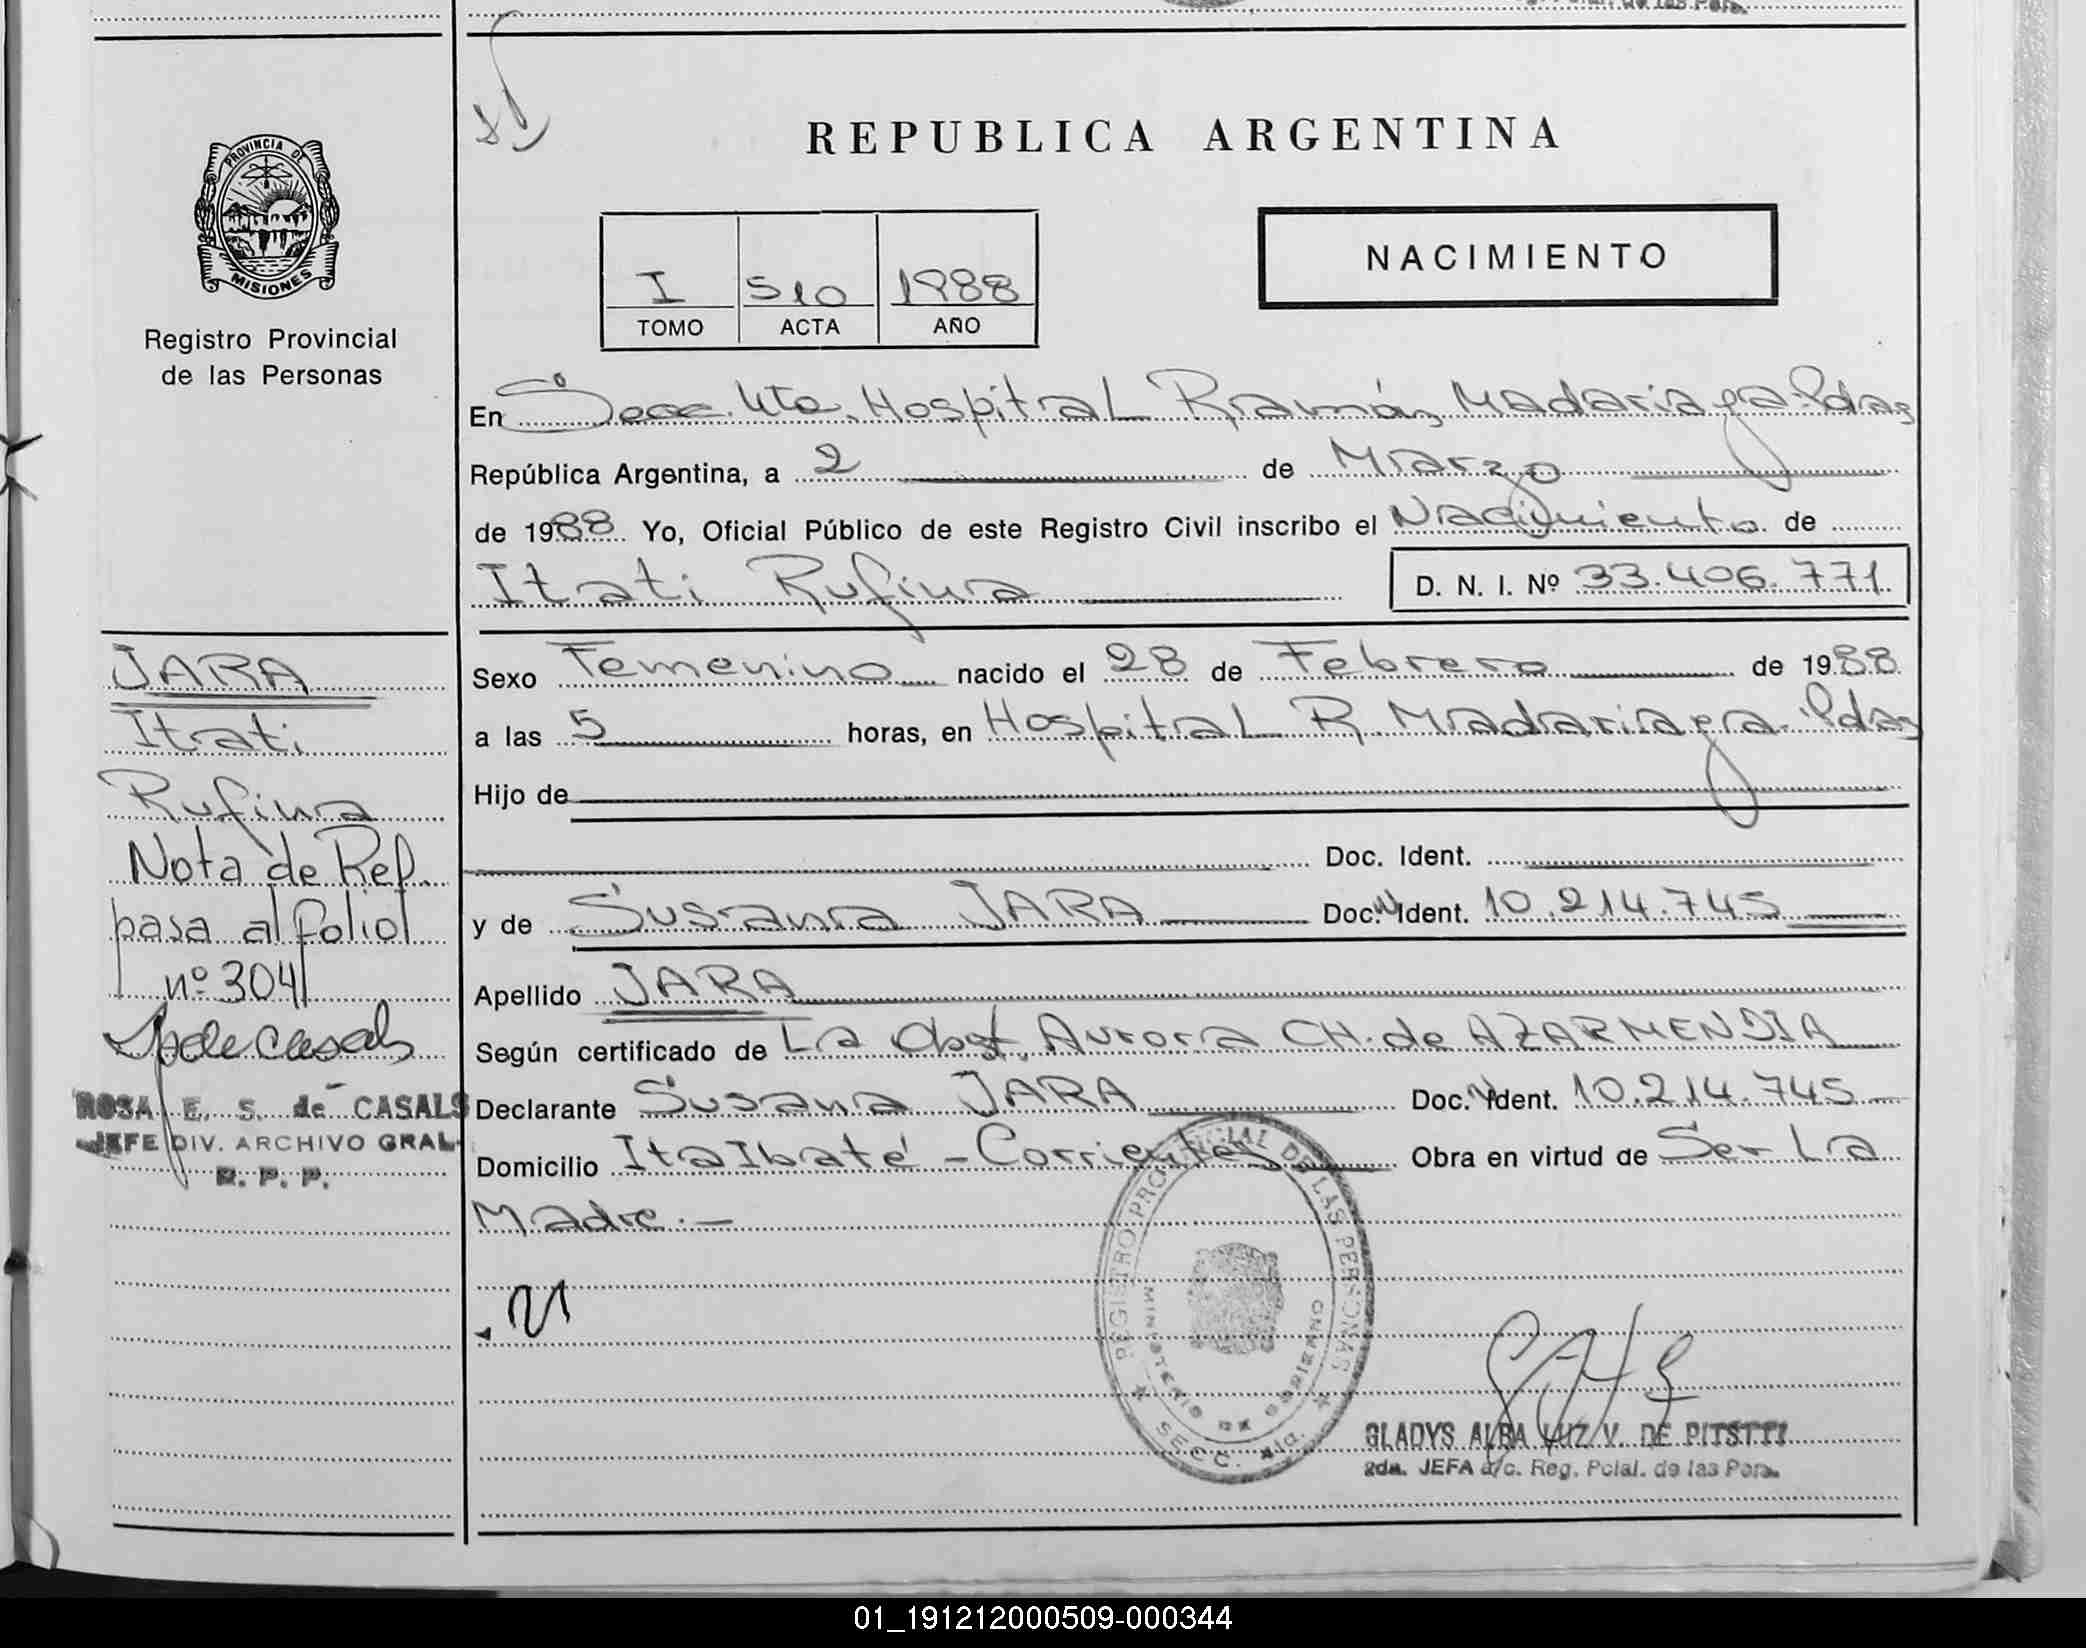 PROVINCIA DE
MISIONES
Registro Provincial
de las Personas
REPUBLICA ARGENTINA
I 510 1988
TOMO ACTA AÑO
NACIMIENTO
En Secc. 4ta. Hospital Ramón Madariaga Pdas
República Argentina, a 2 de Marzo
de 1988 Yo, Oficial Público de este Registro Civil inscribo el Nacimiento de
Itati Rufina D. N. I. Nº 33.406.771.
Sexo Femenino nacido el 28 de Febrero de 1988
a las 5 horas, en Hospital R. Madariaga Pdas
Hijo de
Doc. Ident.
y de Susana JARA Doc. Ident. 10.214.745
Apellido JARA
Según certificado de La Obst. Aurora CH. de AZARMENDIA
Declarante Susana JARA Doc. Ident. 10.214.745
Domicilio ItaIbaté - Corrientes Obra en virtud de Ser La
Madre.-
JARA
Itati
Rufina
Nota de Ref.
pasa al folio
nº 304
ROSA E. S. de CASALS
JEFE DIV. ARCHIVO GRAL.
R. P. P.
REGISTRO PROVINCIAL DE LAS PERSONAS
MINISTERIO DE GOBIERNO
SECC. 4ta.
GLADYS ALBA LUIZ V. DE
2da. JEFA a/c. Reg. Pcial. de las Pers.
01_191212000509-000344